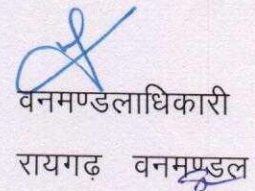 वनमण्डलाधिकारी
रायगढ़ वनमण्डल